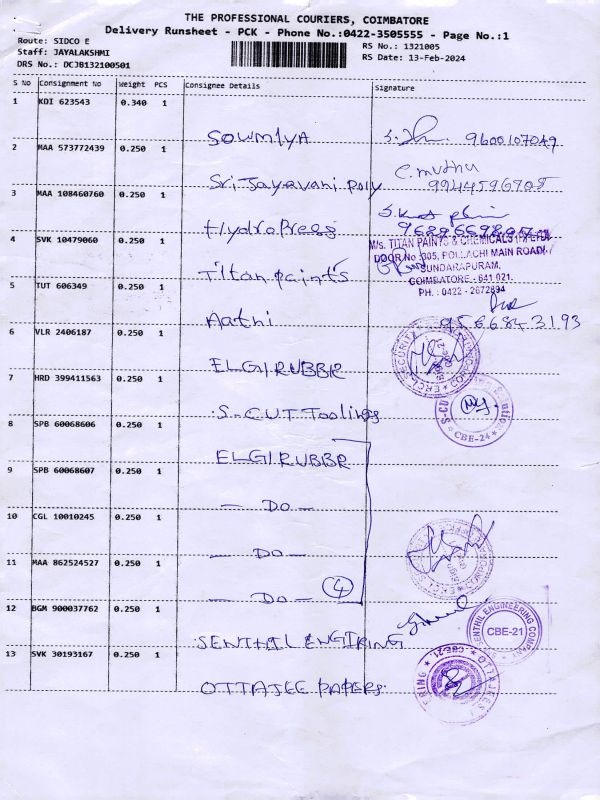 THE PROFESSIONAL COURIERS, COIMBATORE
Delivery Runsheet - PCK - Phone No.:0422-3505555 - Page No.:1
Route: SIDCO E
Staff: JAYALAKSHMI
DRS No.: DCJB132100501
RS No.: 1321005
RS Date: 13-Feb-2024
S No Consignment No Weight PCS Consignee Details Signature
1 KDI 623543 0.340 1
SOWMIYA 9600107049
2 MAA 573772439 0.250 1
C. muthu
Sri Jayavani poly 9944596708
3 MAA 108460760 0.250 1
Hydro Press
4 SVK 10479060 0.250 1
M/s. TITAN PAINTS & CHEMICALS
DOOR No 305, POLLACHI MAIN ROAD
SUNDARAPURAM,
COIMBATORE - 641 021.
PH. : 0422 - 2672894
Titan paints
5 TUT 606349 0.250 1
Aathi 9566843193
6 VLR 2406187 0.250 1
ELGI RUBBR
7 HRD 399411563 0.250 1
S-CUT Toolings
CBE-24
8 SPB 60068606 0.250 1
ELGI RUBBR
9 SPB 60068607 0.250 1
- DO -
10 CGL 10010245 0.250 1
- DO -
11 MAA 862524527 0.250 1
- DO - 4
12 BGM 900037762 0.250 1
SENTHIL ENGIRING
SENTHIL ENGINEERING COMPANY
CBE-21
13 SVK 30193167 0.250 1
OTTAJEE PAPERS
CBE-21.